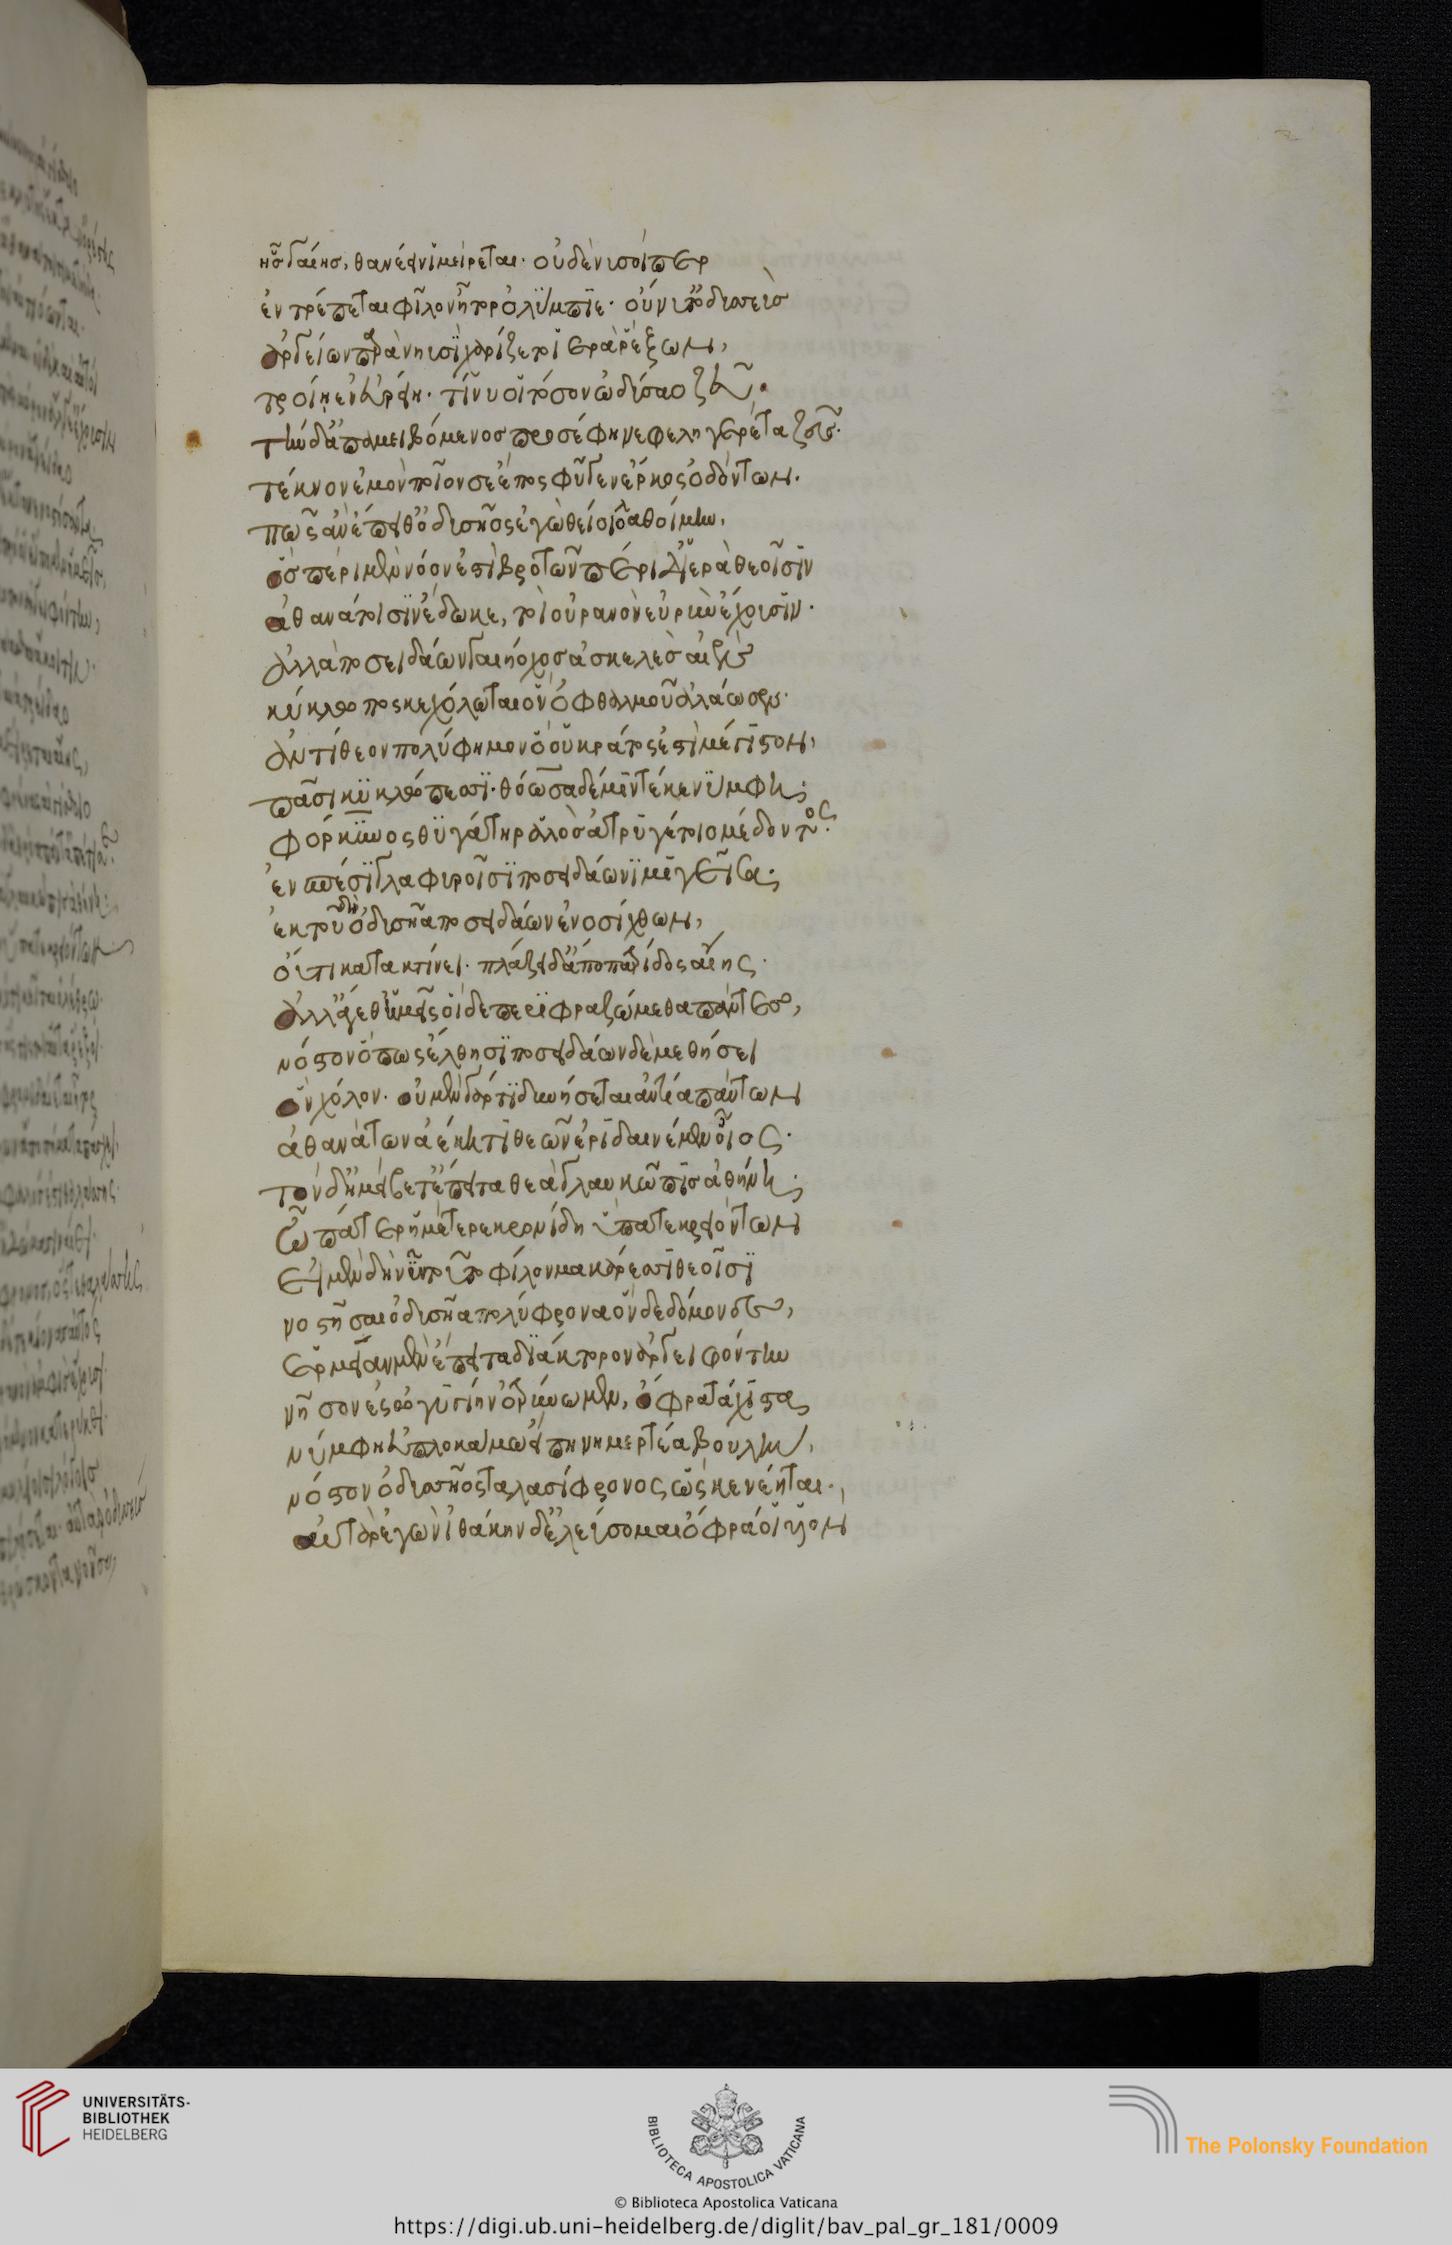 ἧς γαίης, θανέειν ἱμείρεται. οὐδέ νυ σοί περ
ἐντρέπεται φίλον ἦτορ ὀλύμπιε. οὔ νύ τ' ὀδυσσεὺς
ἀργείων παρὰ νηυσὶ χαρίζετο ἱερὰ ῥέζων,
τροίῃ ἐν εὐρείῃ. τί νύ οἱ τόσον ὠδύσαο ζεῦ.
τὴν δ' ἀπαμειβόμενος προσέφη νεφεληγερέτα ζεύς.
τέκνον ἐμὸν ποῖόν σε ἔπος φύγεν ἕρκος ὀδόντων.
πῶς ἂν ἔπειτ' ὀδυσῆος ἐγὼ θείοιο λαθοίμην,
ὃς περὶ μὲν νόον ἐστὶ βροτῶν περὶ δ' ἱερὰ θεοῖσιν
ἀθανάτοισιν ἔδωκε, τοὶ οὐρανὸν εὐρὺν ἔχουσιν.
ἀλλὰ ποσειδάων γαιήοχος ἀσκελὲς αἰεὶ
κύκλωπος κεχόλωται ὃν ὀφθαλμοῦ ἀλάωσεν.
ἀντίθεον πολύφημον ὅου κράτος ἐστὶ μέγιστον,
πᾶσι κυκλώπεσσι. θόωσα δέ μιν τέκε νύμφη.
φόρκυνος θυγάτηρ ἁλὸς ἀτρυγέτοιο μέδοντος.
ἐν σπέσσι γλαφυροῖσι ποσειδάωνι μιγεῖσα.
ἐκ τοῦ δὴ ὀδυσῆα ποσειδάων ἐνοσίχθων,
οὔτι κατακτείνει. πλάζει δ' ἀπὸ πατρίδος αἴης.
ἀλλ' ἄγεθ' ἡμεῖς οἵδε περιφραζώμεθα πάντες,
νόστον ὅπως ἔλθησι ποσειδάων δὲ μεθήσει
ὃν χόλον. οὐ μὲν γάρ τι δυνήσεται ἀντία πάντων
ἀθανάτων ἀέκητι θεῶν ἐριδαινέμεν οἶος.
τὸν δ' ἠμείβετ' ἔπειτα θεὰ γλαυκῶπις ἀθήνη.
ὦ πάτερ ἡμέτερε κρονίδη ὕπατε κρειόντων
εἰ μὲν δὴ νῦν τοῦτο φίλον μακάρεσσι θεοῖσι
νοστῆσαι ὀδυσῆα πολύφρονα ὅνδε δόμονδε,
ἑρμείαν μὲν ἔπειτα διάκτορον ἀργειφόντην
νῆσον ἐς ὠγυγίην ὀτρύνωμεν, ὄφρα τάχιστα
νύμφῃ ἐϋπλοκάμῳ εἴπῃ νημερτέα βουλὴν,
νόστον ὀδυσσῆος ταλασίφρονος ὥς κε νέηται.
αὐτὰρ ἐγὼν ἰθάκηνδ' ἐλεύσομαι ὄφρά οἱ υἱὸν
UNIVERSITÄTS-
BIBLIOTHEK
HEIDELBERG
BIBLIOTECA APOSTOLICA VATICANA
© Biblioteca Apostolica Vaticana
The Polonsky Foundation
https://digi.ub.uni-heidelberg.de/diglit/bav_pal_gr_181/0009